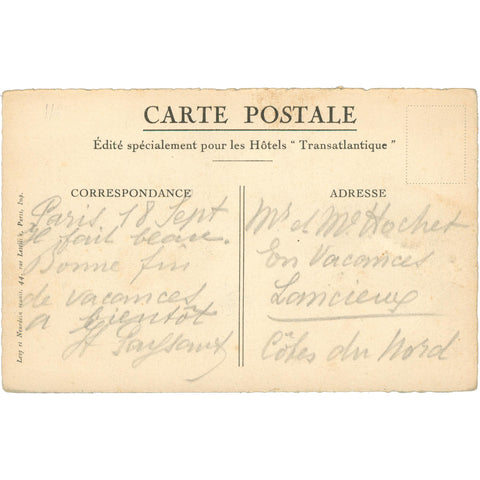 CARTE POSTALE
Édité spécialement pour les Hôtels “ Transatlantique ”
CORRESPONDANCE
Paris, 18 Sept
Il fait beau.
Bonne fin
de vacances
a bientôt
ADRESSE
Mr et Me Hochet
En Vacances
Lancieux
Côtes du Nord
Levy et Neurdein réunis, 44, rue Letellier, Paris, Imp.